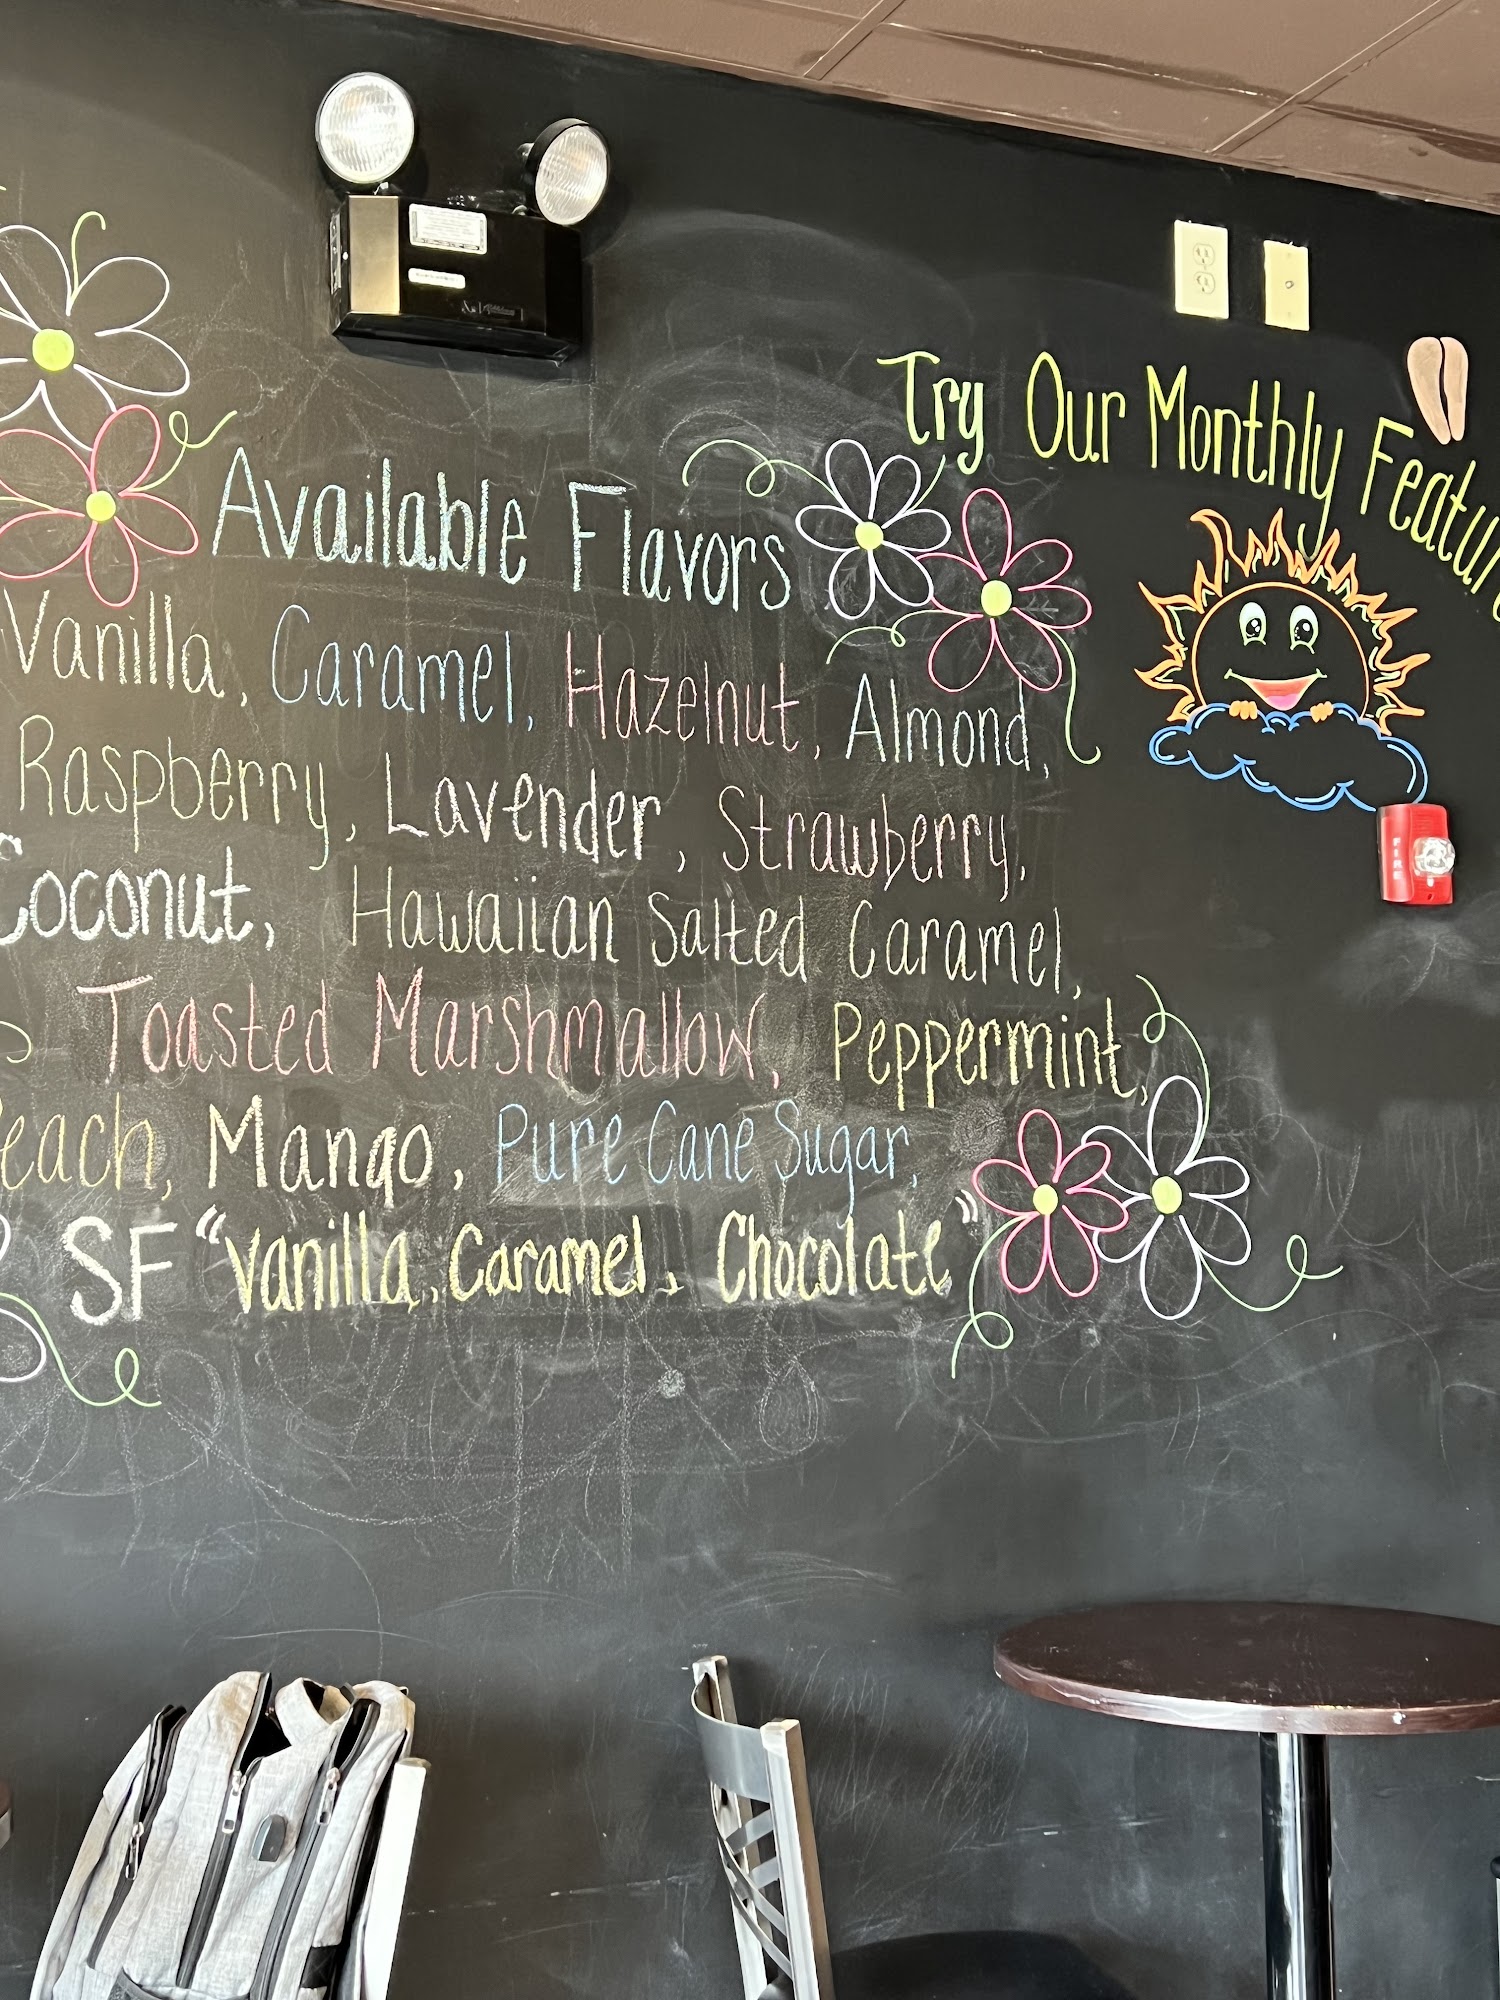 Available Flavors
Vanilla, Caramel, Hazelnut, Almond,
Raspberry, Lavender, Strawberry,
Coconut, Hawaiian Salted Caramel,
Toasted Marshmallow, Peppermint,
each, Mango, Pure Cane Sugar,
SF "Vanilla, Caramel, Chocolate"
Try Our Monthly Feature
FIRE